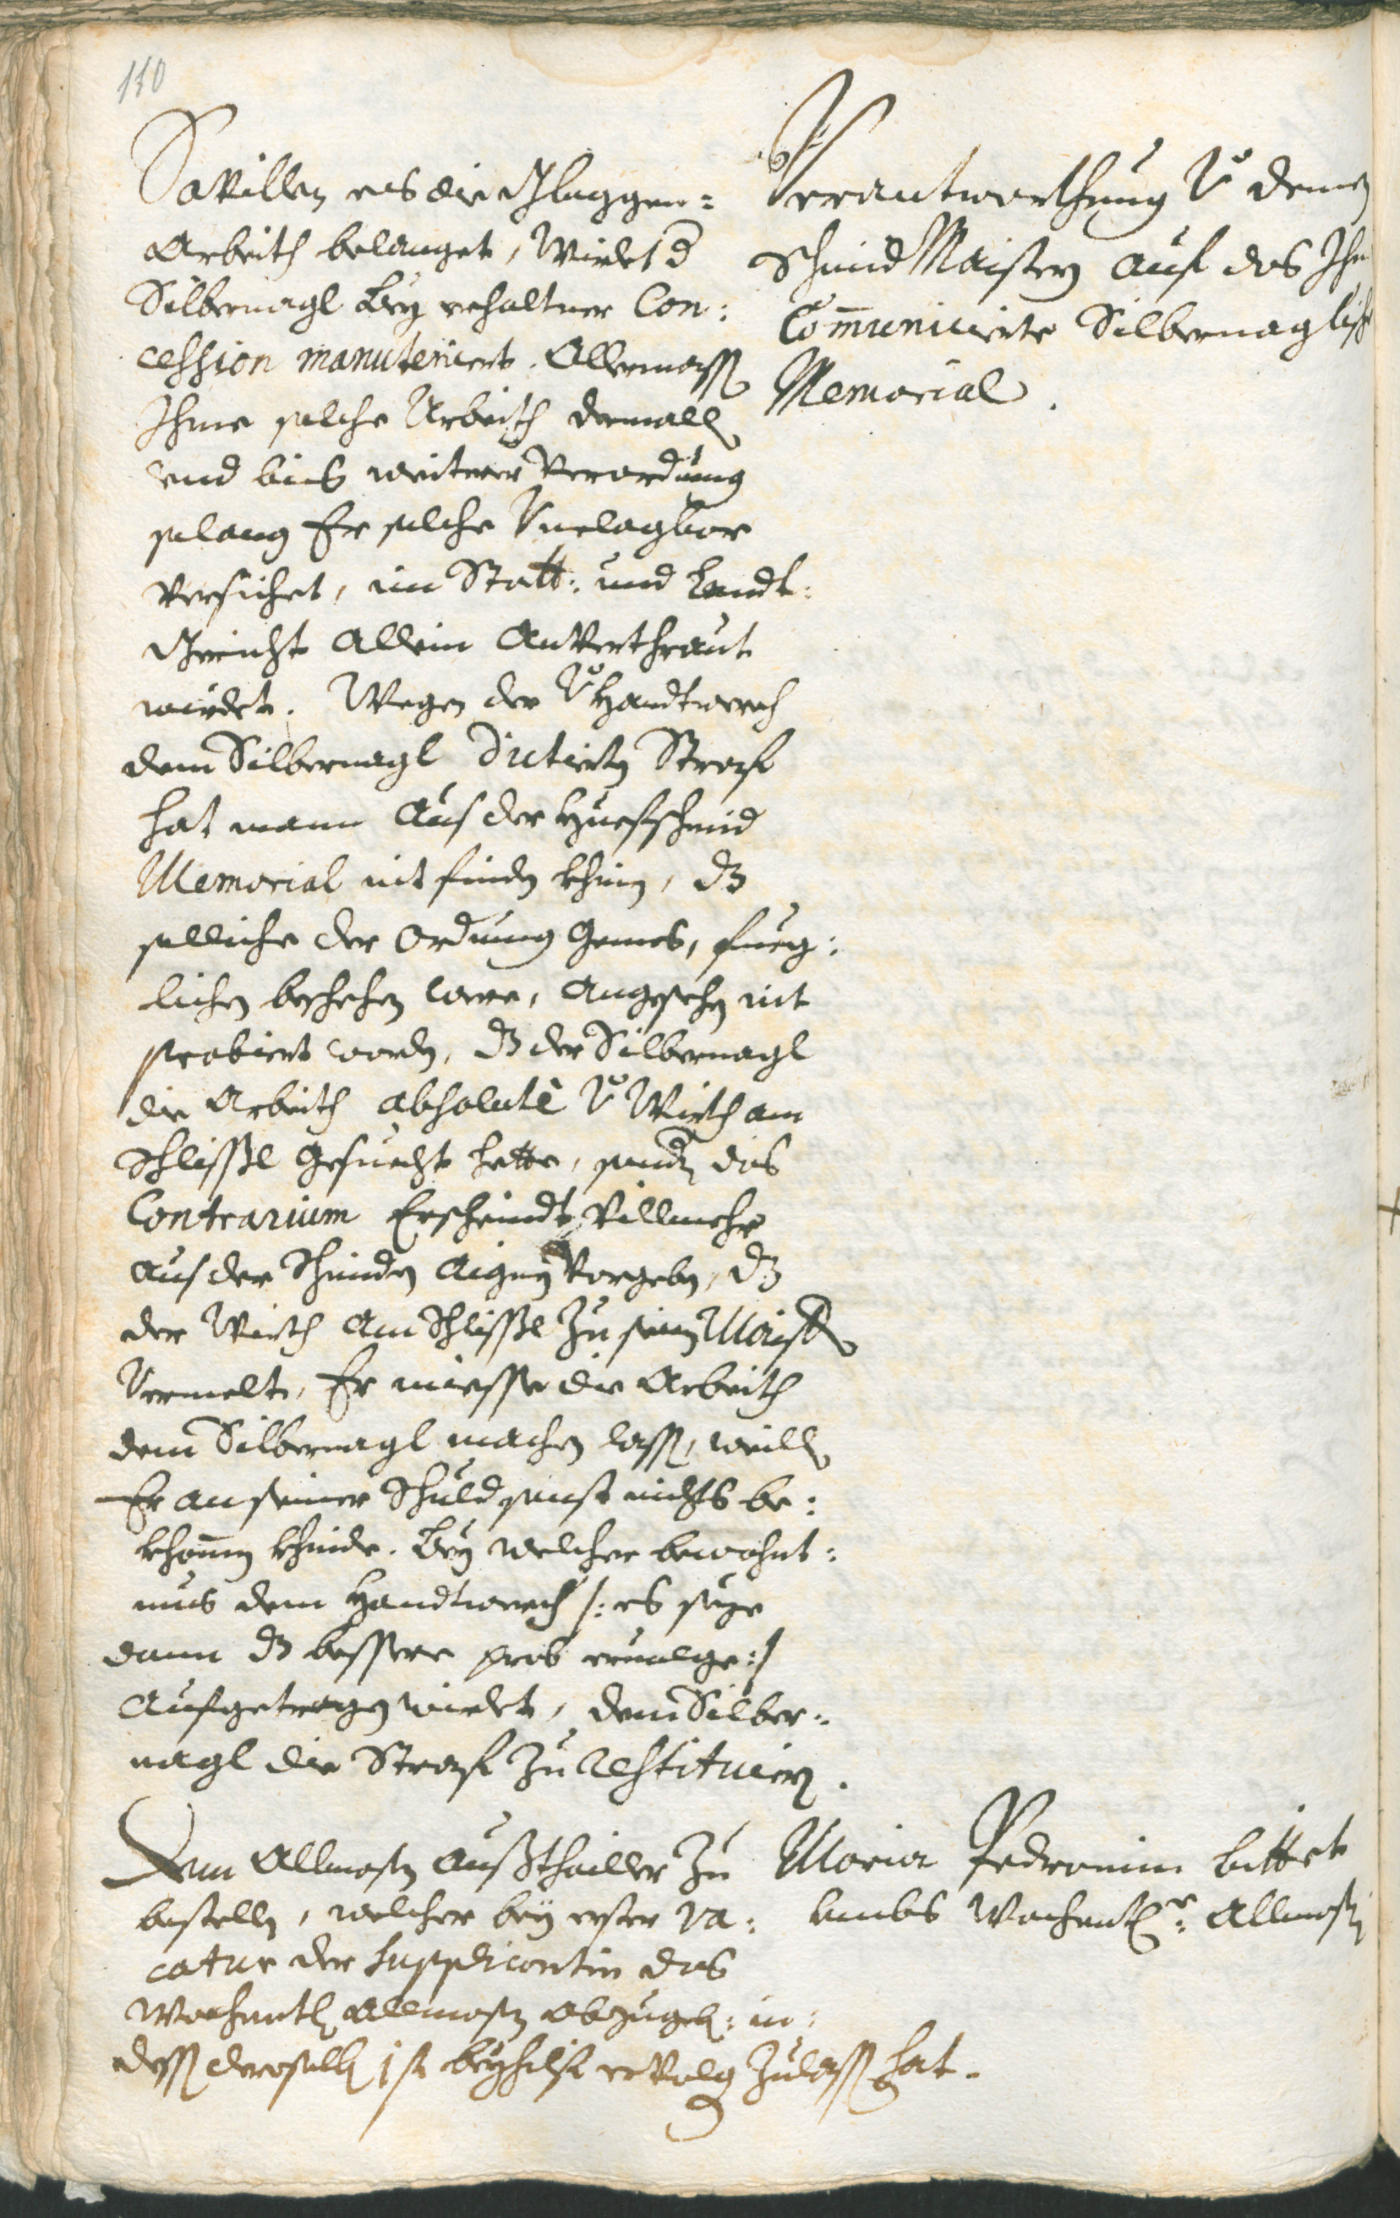 110
Savillen es die Gloggen=
Arbeith belanget, Wirdet d
Silbernagl Bey erhaltner Con:
cession manuteniert. Allermassen
Ihme solche Arbeith dermalln
und bis weiterer Verordnung
solang Er solche Unclagbar
versichet, im Statt: und Landt:
Gericht Allein Anverthraut
wirdet. Wegen der V Handtwerch
dem Silbernagl Dictierten Straff
hat mann Aus der Huefschmid
Memorial nit finden khinen, dz
solliche der Ordnung Gemes, fueg:
lichen beschehen were, Angesehen nit
probiert worden, dz der Silbernagl
die Arbeith absolutè V Wirth am
Schlissl Gesuecht hette, sondern das
Contrarium Erscheindt villmehr
aus der Schmiden Aignen Vorgeben, dz
der Wirth Am Schlissl Zu seinen Maister
Vermelt, Er miesse die Arbeith
dem Silbernagl machen lassen, weilln
Er an seiner Schuld sonst nichts be:
khomen khinde. Bey welcher bewohnt:
nus dem Handtwerch /: es seye
dann dz bessere prob ervolge :/
Aufgetragen wirdet, dem Silber:
nagl die Straff Zu restituieren.
Verantworthung V denen
Schmid Maistern Auf das Ihnen
Communicierte Silbernaglische
Memorial.
Dem Allmosen Austhailler Zu
bestellen, welcher bey erster va:
catur der Supplicantin das
Wochentl Allmosen Abzugeben: in:
dessen deroselben 1 fl beyhilf ervolgen Zulassen hat.
Maria Pedronin bittet
umbs Wochentl: Allmosen